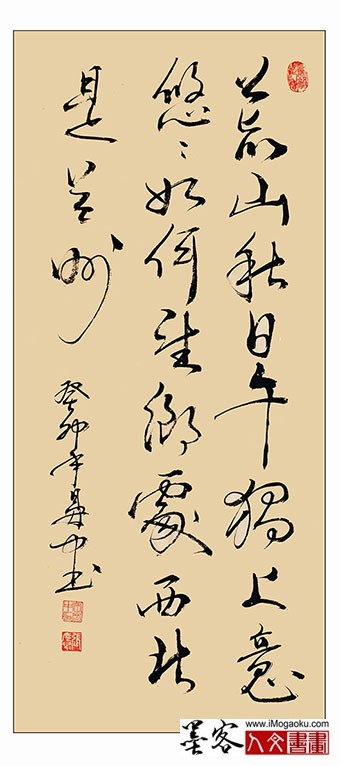 荒山秋日午獨上意
悠悠如何望鄉處西北
是州
癸卯年書
www.iMogaoku.com
墨客人文書畫